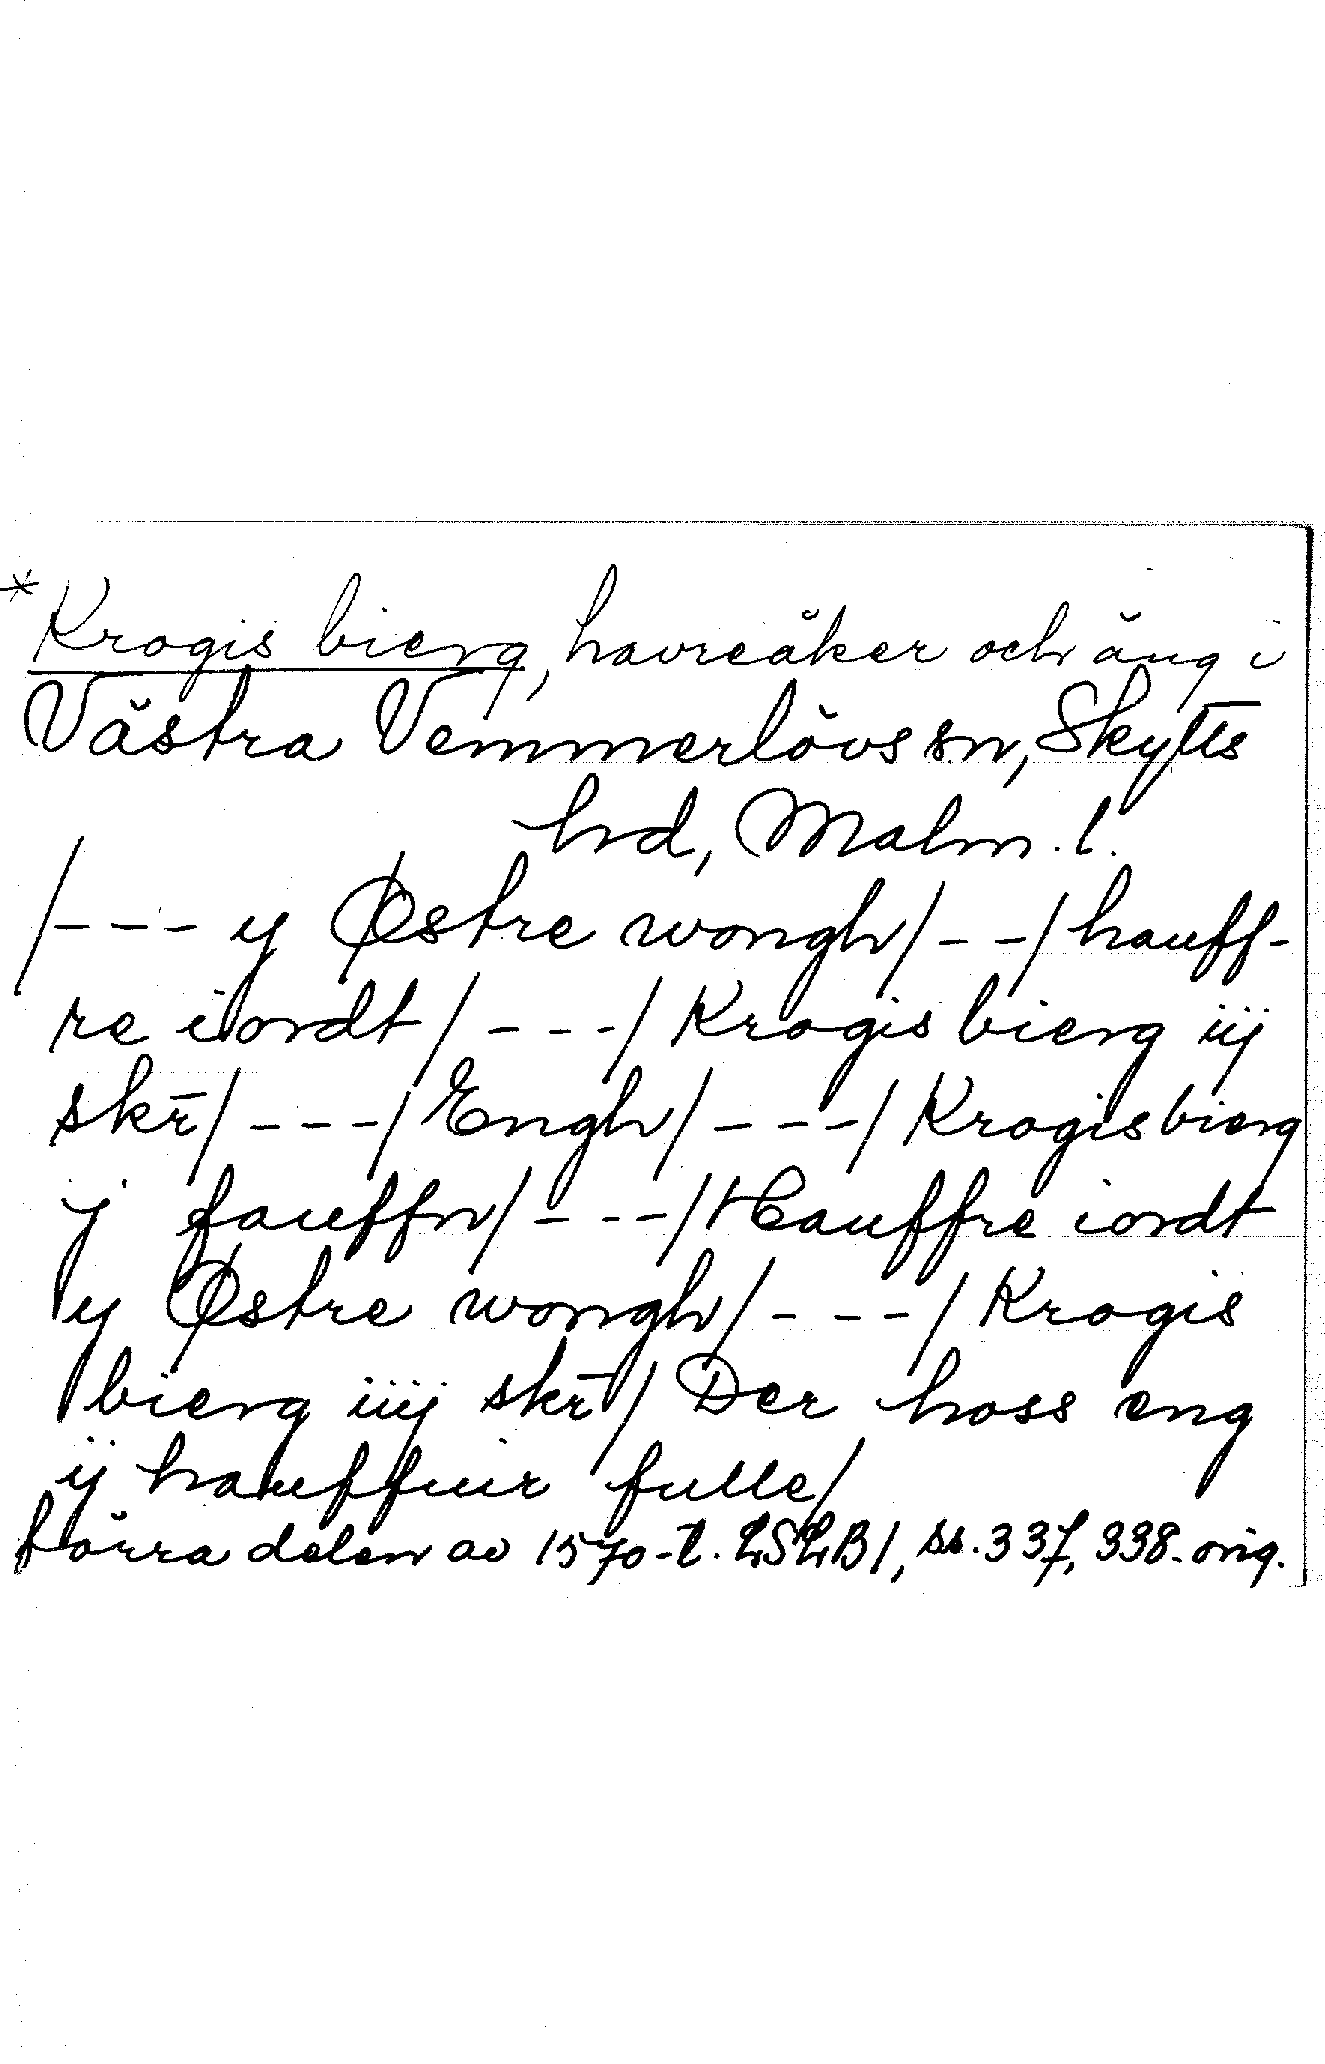 * Krogis bierg, havreåker och äng i
Västra Vemmerlövs sn, Skytts
hd, Malm. l.
/--- y Østre wongh/--/hauff-
re iordt/---/Krogis bierg iij
skr̄/---/Engh/---/Krogis bierg
j fauffn/---/Hauffre iordt
y Østre wongh/---/Krogis
bierg iiij skr̄/ Der hoss eng
ij hauffuir fulle/
förra delen av 1570-t. LSLB1, ss. 337, 338. orig.